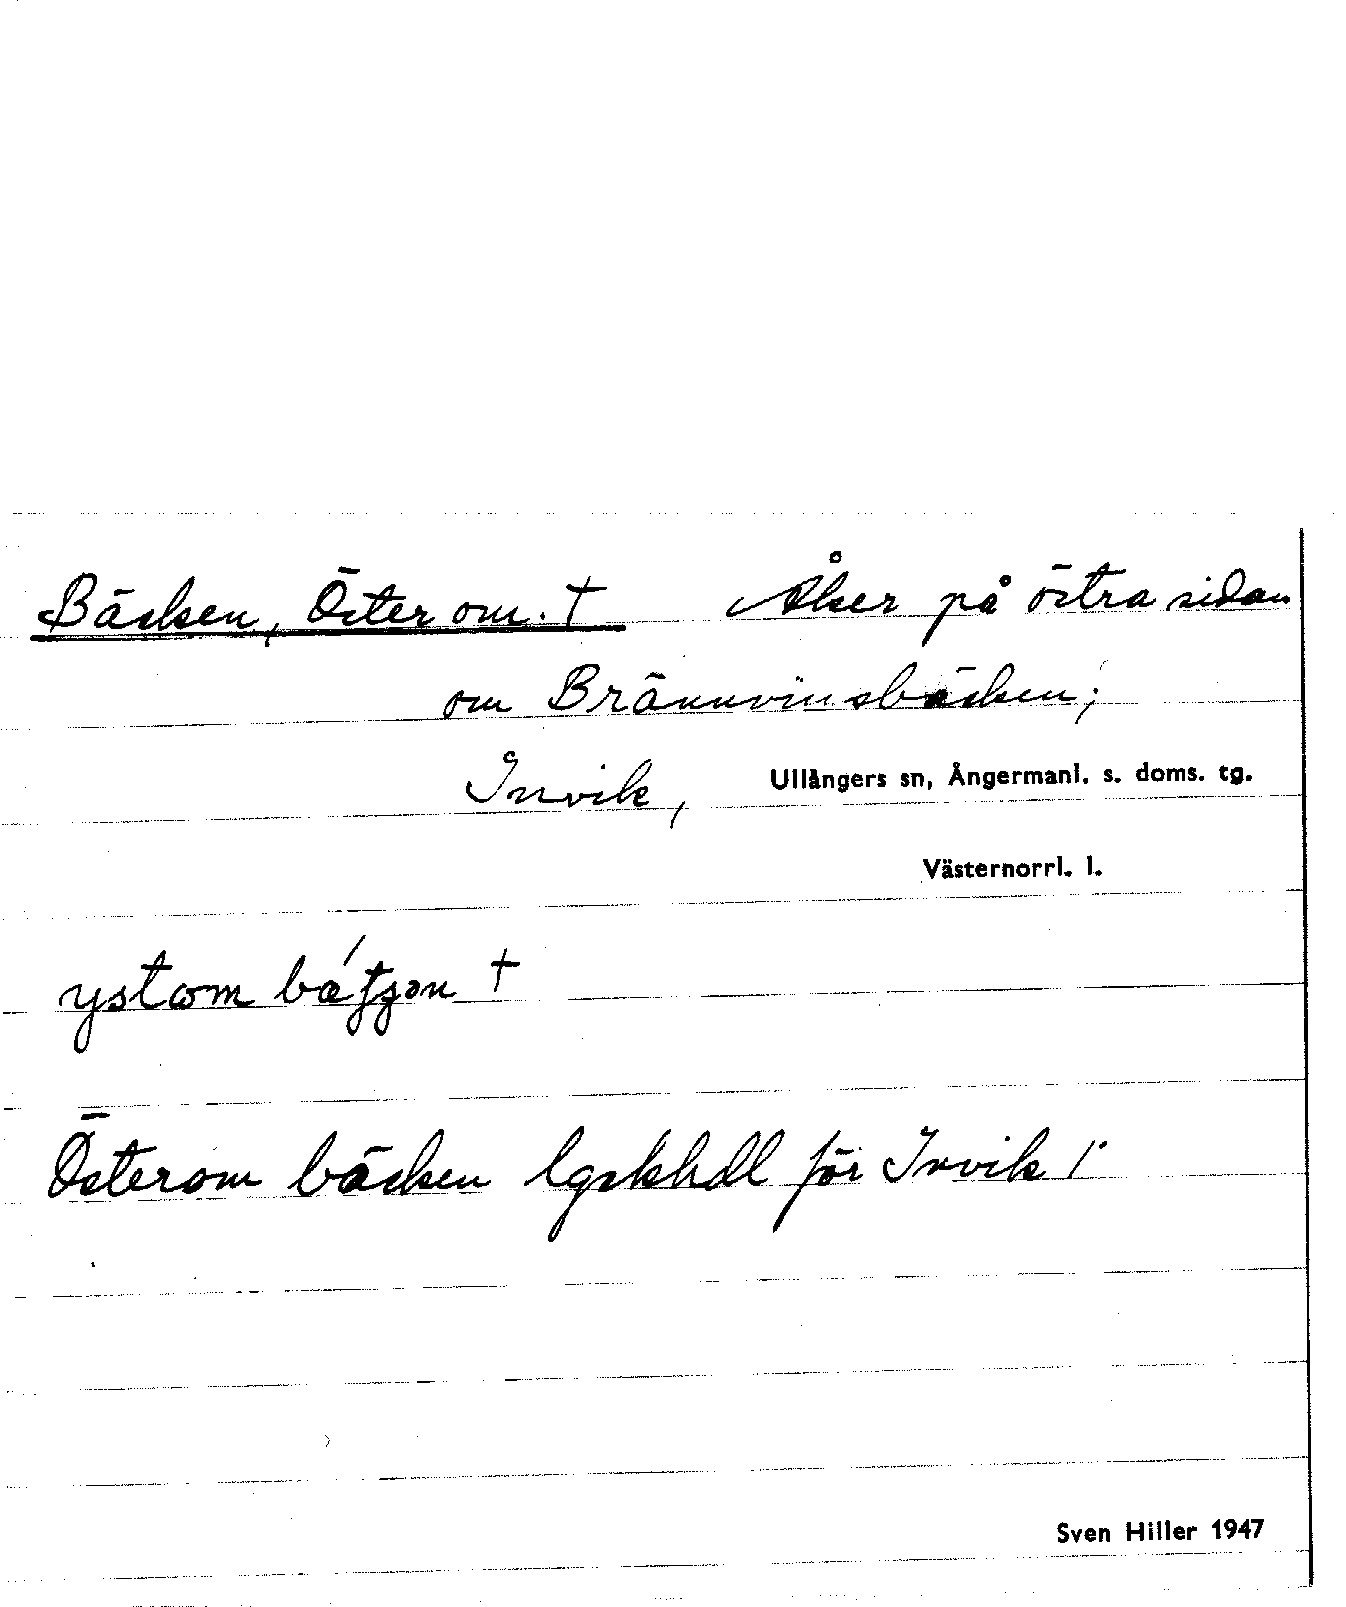 Bäcken, Öster om. † Åker på östra sidan
om Brännvinsbäcken;
Invik, Ullångers sn, Ångermanl. s. doms. tg.
Västernorrl. l.
om †
Österom bäcken lgskhdl för Invik
Sven Hiller 1947